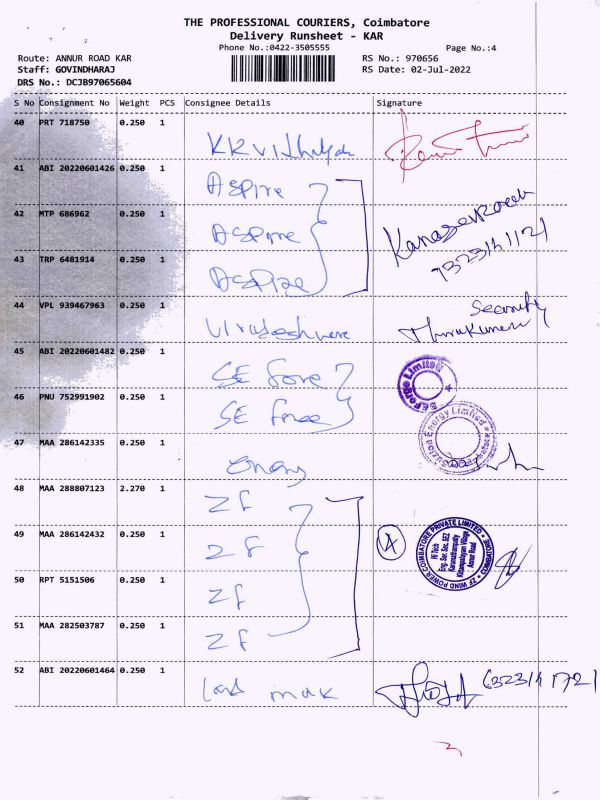 THE PROFESSIONAL COURIERS, Coimbatore
Delivery Runsheet - KAR
Phone No.:0422-3505555
Page No.:4
Route: ANNUR ROAD KAR
RS No.: 970656
Staff: GOVINDHARAJ
RS Date: 02-Jul-2022
DRS No.: DCJB97065604
S No Consignment No Weight PCS Consignee Details Signature
40 PRT 718750 0.250 1
41 ABI 20220601426 0.250 1 Aspire
42 MTP 686962 0.250 1 Aspire
43 TRP 6481914 0.250 1 Aspire
44 VPL 939467963 0.250 1 Security
45 ABI 20220601482 0.250 1 SE Forge
SEForge Limited
46 PNU 752991902 0.250 1 SE Forge
47 MAA 286142335 0.250 1
Energy Limited
48 MAA 288807123 2.270 1 ZF
49 MAA 286142432 0.250 1 ZF 4
ZF WIND POWER COIMBATORE PRIVATE LIMITED • COIMBATORE
Hi Tech
Eng. Sec. SEZ
Annur Road
50 RPT 5151506 0.250 1 ZF
51 MAA 282503787 0.250 1 ZF
52 ABI 20220601464 0.250 1 Land mak